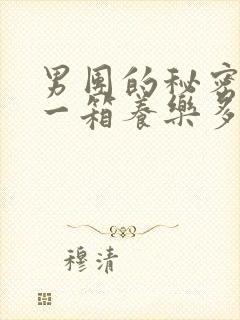 男团的秘密
一箱养樂多
穆清